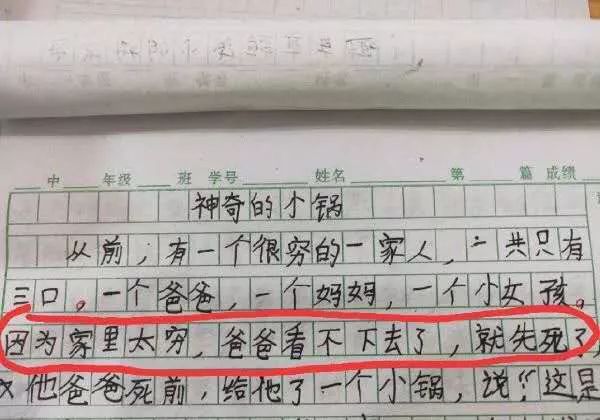 中 年级 班 学号 姓名 第 篇 成绩
神奇的小锅
从前,有一个很穷的一家人,一共只有
三口。一个爸爸,一个妈妈,一个小女孩。
因为家里太穷,爸爸看不下去了,就先死了
他爸爸死前,给他了一个小锅,说:"这是